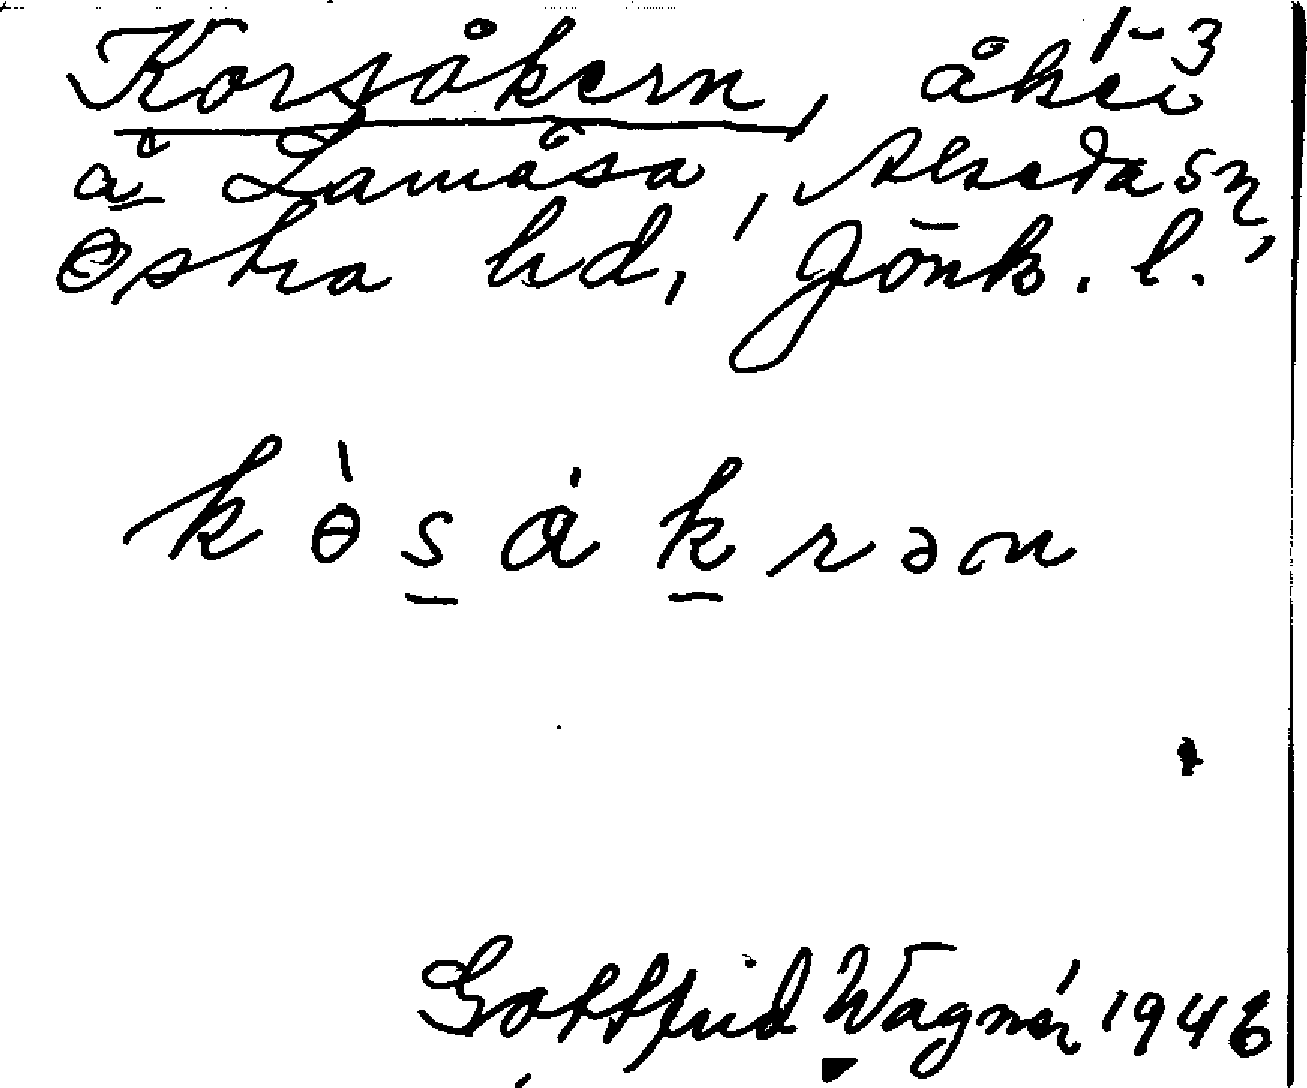 Korsåkern, åker 1-3
å Lamåsa, Alseda sn,
Östra hd, Jönk. l.
kòsákrən
Gottfrid Wagnér 1946